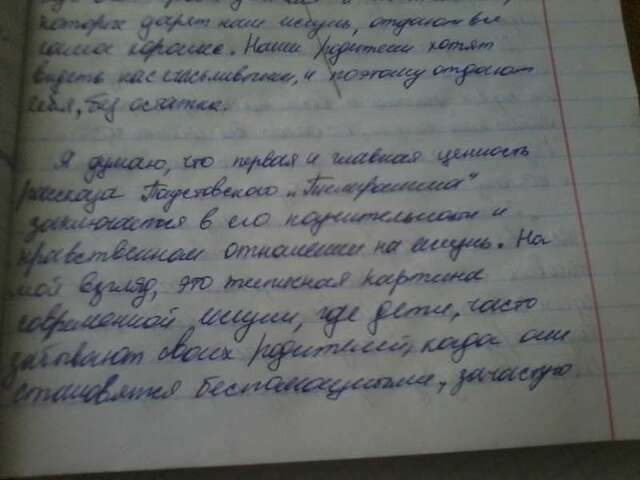 которая дарят нам жизнь, отдают все
самое хорошее. Наши родители хотят
видеть нас счастливыми, и поэтому отдают
себя, без остатка.
Я думаю, что первая и главная ценность
рассказа Паустовского „Телеграмма"
заключается в его поучительном и
нравственном отношении на жизнь. На
мой взгляд, это типичная картина
современной жизни, где дети, часто
забывают своих родителей, когда они
становятся беспомощными, зачастую